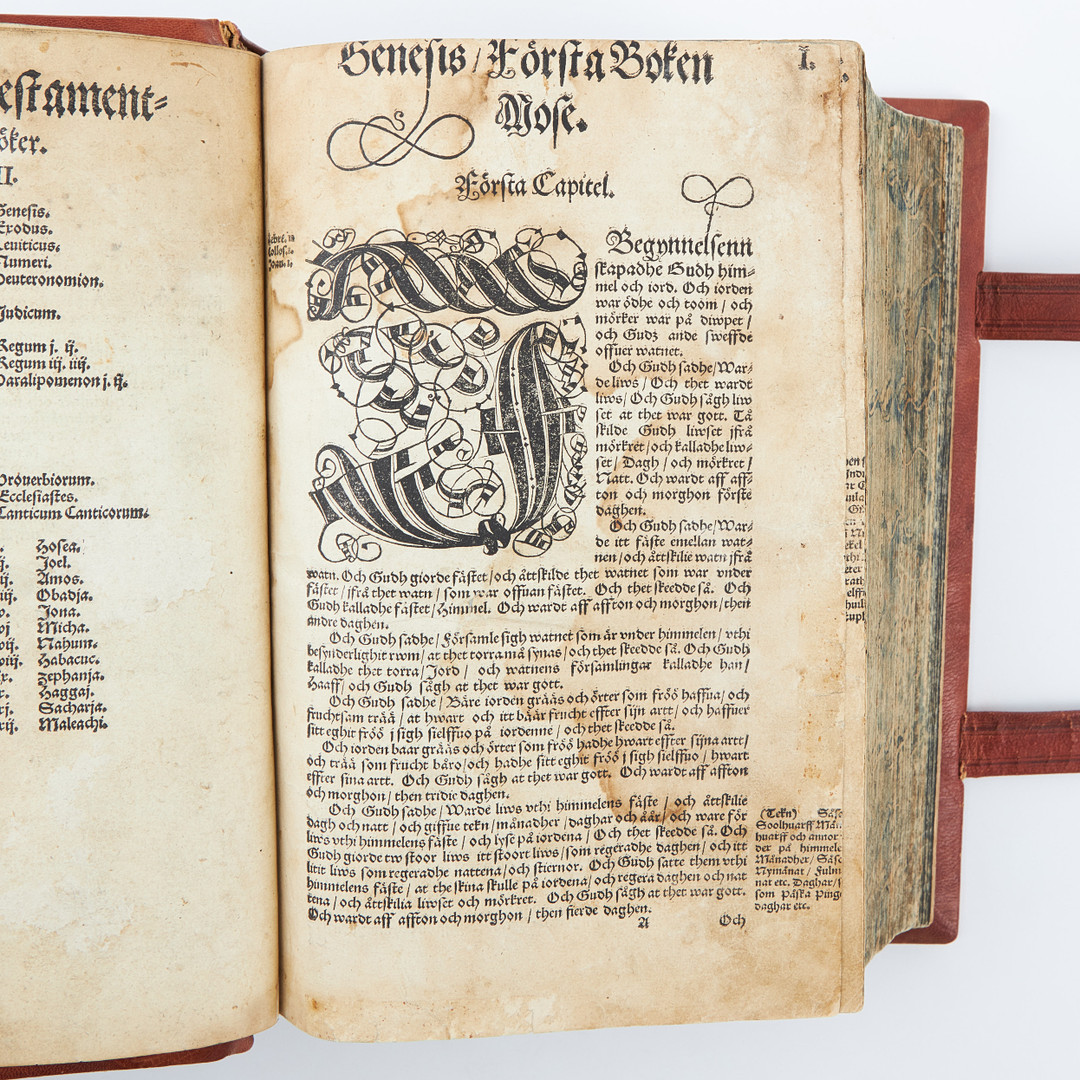 estament⸗
öker.
II.
Genesis.
Exodus.
Leuiticus.
Numeri.
Deuteronomion.
Judicum.
Regum j. ij.
Regum iij. iiij.
Paralipomenon j. ij.
Prouerbiorum.
Ecclesiastes.
Canticum Canticorum.
Hosea.
Joel.
Amos.
Obadja.
Jona.
Micha.
Nahum.
Habacuc.
Zephanja.
Haggaj.
Sacharja.
Maleachi.
Genesis / Första Boken
Mose.
I.
Första Capitel.
I Begynnelsenn
skapadhe Gudh him⸗
mel och iord. Och iorden
war ödhe och toom / och
mörker war på diwpet /
och Gudz ande sweffde
offuer watnet.
Och Gudh sadhe / War⸗
de liws / Och thet wardt
liws / Och Gudh sågh liw
set at thet war gott. Tå
skilde Gudh liwset jfrå
mörkret / och kalladhe liw⸗
set / Dagh / och mörkret /
Natt. Och wardt aff aff⸗
ton och morghon förste
daghen.
Och Gudh sadhe / War⸗
de itt fäste emellan wat⸗
nen / och åttskilie watn jfrå
watn. Och Gudh giorde fästet / och åttskilde thet watnet som war vnder
fästet / jfrå thet watn / som war offuan fästet. Och thet skeedde så. Och
Gudh kalladhe fästet / Himmel. Och wardt aff affton och morghon / then
andre daghen.
Och Gudh sadhe / Församle sigh watnet som är vnder himmelen / vthi
besynderlighit rwm / at thet torra må synas / och thet skeedde så. Och Gudh
kalladhe thet torra / Jord / och watnens församlingar kalladhe han /
Haaff / och Gudh sågh at thet war gott.
Och Gudh sadhe / Bäre iorden gräås och örter som fröö haffua / och
fruchtsam trää / at hwart och itt bäär frucht effter sijn artt / och haffuer
sitt eghit fröö j sigh sielffuo på iordenne / och thet skeedde så.
Och iorden baar gräås och örter som fröö hadhe hwart effter sijna artt /
och trää som frucht båro / och hadhe sitt eghit fröö j sigh sielffuo / hwart
effter sina artt. Och Gudh sågh at thet war gott. Och wardt aff affton
och morghon / then tridie daghen.
Och Gudh sadhe / Warde liws vthi himmelens fäste / och åttskilie
dagh och natt / och giffue tekn / månadher / daghar och åår / och ware för
liws vthi himmelens fäste / och lyse på iordena / Och thet skeedde så. Och
Gudh giorde tw stoor liws itt stoort liws / som regeradhe daghen / och itt
litit liws som regeradhe nattena / och stiernor. Och Gudh satte them vthi
himmelens fäste / at the skina skulle på iordena / och regera daghen och nat
tena / och åttskilia liwset och mörkret. Och Gudh sågh at thet war gott.
Och wardt aff affton och morghon / then fierde daghen.
A
Och
(Tekn)
Soolhuarff
huarff och annor
der på himmele
Månadher /
Nymånat /
nat etc. Daghar /
som Påska Ping
daghar etc.